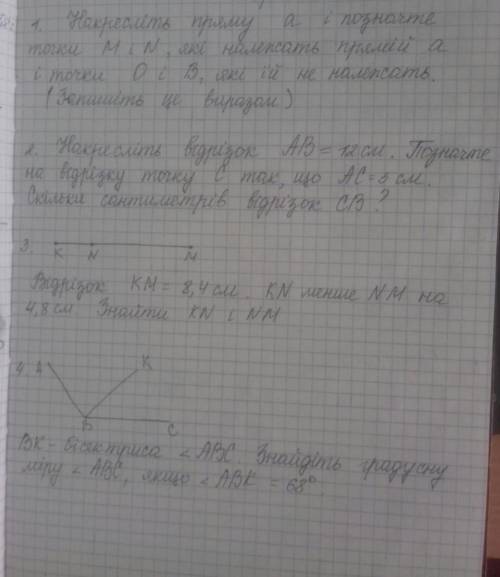 1. Накресліть пряму a і позначте
точки M і N, які належать прямій a
і точки O і B, які їй не належать.
(Запишіть це виразом)
2. Накресліть відрізок AB = 12 см. Позначте
на відрізку точку C так, що AC = 3 см.
Скільки сантиметрів відрізок CB?
3.
K N M
Відрізок KM = 8,4 см. KN менше NM на
4,8 см. Знайти KN і NM
4. A K
B C
BK - бісектриса ∠ABC. Знайдіть градусну
міру ∠ABC, якщо ∠ABK = 68°.